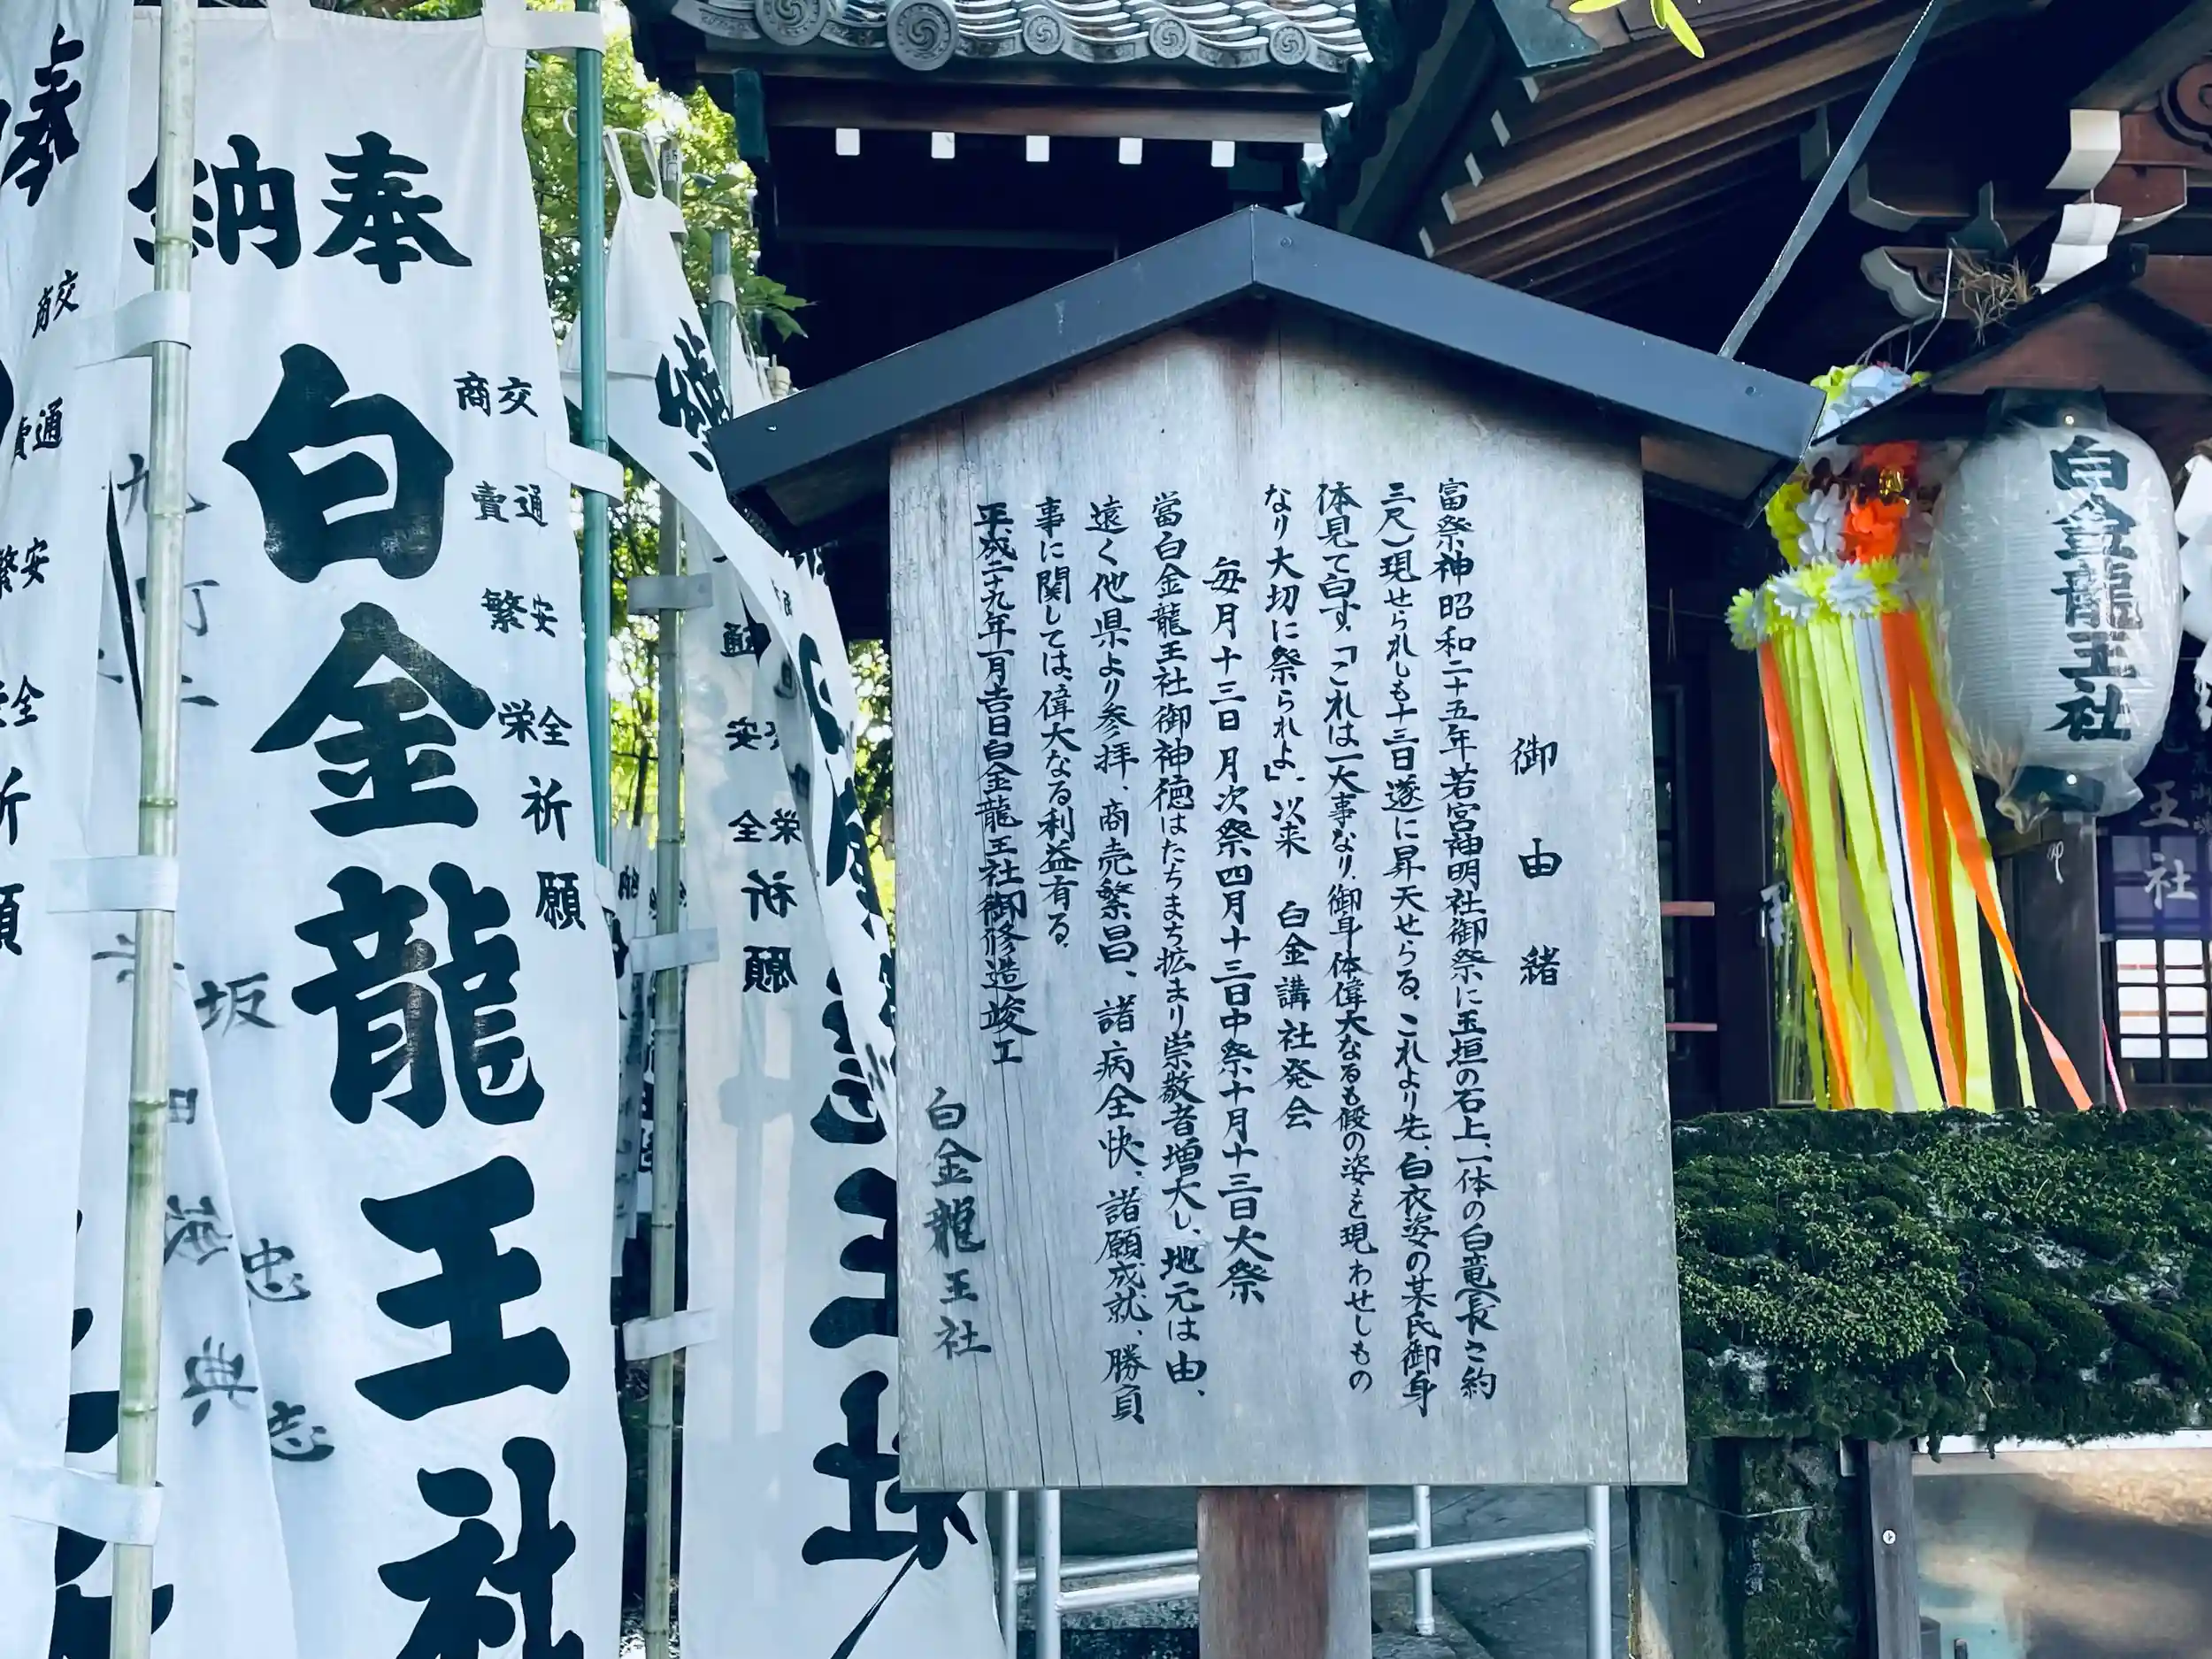 御由緒
富祭神昭和二十五年若宮神明社御祭に玉垣の石上、一体の白竜(長さ約
三尺)現せられしも十三日遂に昇天せらる。これより先、白衣姿の某氏御身
体見て白す。「これは一大事なり、御身体偉大なるも假の姿を現わせしもの
なり大切に祭られよ」。以来 白金講社発会
毎月十三日月次祭四月十三日中祭十月十三日大祭
當白金龍王社御神徳はたちまち拡まり崇敬者増大し、地元は由、
遠く他県より参拝、商売繁昌、諸病全快、諸願成就、勝負
事に関しては、偉大なる利益有る。
平成二十九年一月吉日白金龍王社御修造竣工
白金龍王社
白金龍王社
王社
奉納
交通安全祈願
商賣繁栄
白金龍王社
交通安
商賣繁
安全
繁栄
祈願